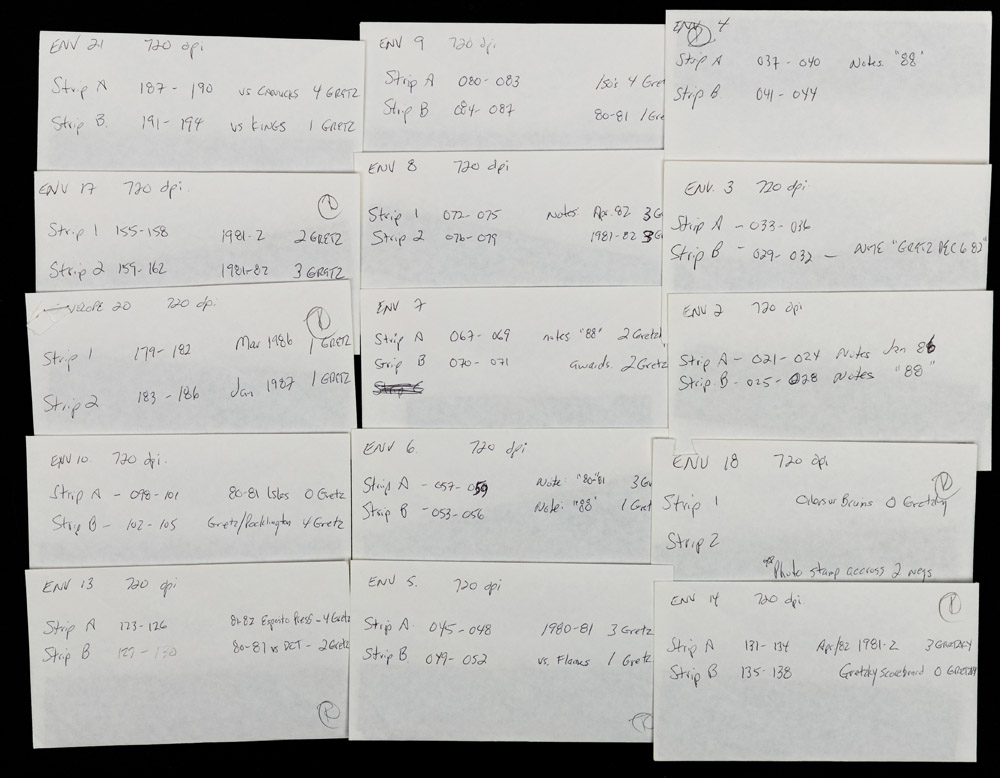 ENV 21 720 dpi
Strip A 187 - 190 vs CANUCKS 4 GRETZ
Strip B. 191 - 194 vs KINGS 1 GRETZ
ENV 17 720 dpi.
Strip 1 155-158 1981-2 2 GRETZ
Strip 2 159-162 1981-82 3 GRETZ
VELOPE 20 720 dpi.
Strip 1 179 - 182 Mar 1986 1 GRETZ
Strip 2 183 - 186 Jan 1987 1 GRETZ
ENV 10. 720 dpi.
Strip A - 098-101 80-81 Isles 0 Gretz
Strip B - 102-105 Gretz/Pocklington 4 Gretz
ENV 13 720 dpi
Strip A 123-126 81-82 Esposito Press - 4 Gretz
Strip B 127-130 80-81 vs DET - 2 Gretz
ENV 9 720 dpi.
Strip A 080-083 4 Gre
Strip B 084-087 80-81 1 Gre
ENV 8 720 dpi.
Strip 1 072-075 Notes: Apr. 82 3 G
Strip 2 076-079 1981-82 3 G
ENV 7
Strip A 067-069 notes "88" 2 Gretz
Strip B 070-071 awards. 2 Gretz
ENV 6 720 dpi.
Strip A - 057-059 Note: "80-81 3 Gr
Strip B - 053-056 Note: "88" 1 Gret
ENV 5. 720 dpi.
Strip A. 045-048 1980-81 3 Gretz
Strip B. 049-052 vs. Flames 1 Gretz
ENV 4
Strip A 037 - 040 Notes. "88"
Strip B 041 - 044
ENV. 3 720 dpi.
Strip A - 033-036
Strip B - 029-032 - NOTE "GRETZ DEC 6 82"
ENV 2 720 dpi.
Strip A - 021-024 Notes Jan 86
Strip B - 025-028 Notes "88"
ENV 18 720 dpi
Strip 1 Oilers Bruins 0 Gretzky
Strip 2
Photo stamp accross 2 negs
ENV 14 720 dpi.
Strip A 131-134 Apr/82 1981-2 3 GRETZKY
Strip B 135-138 Gretzky scoreboard 0 GRETZKY